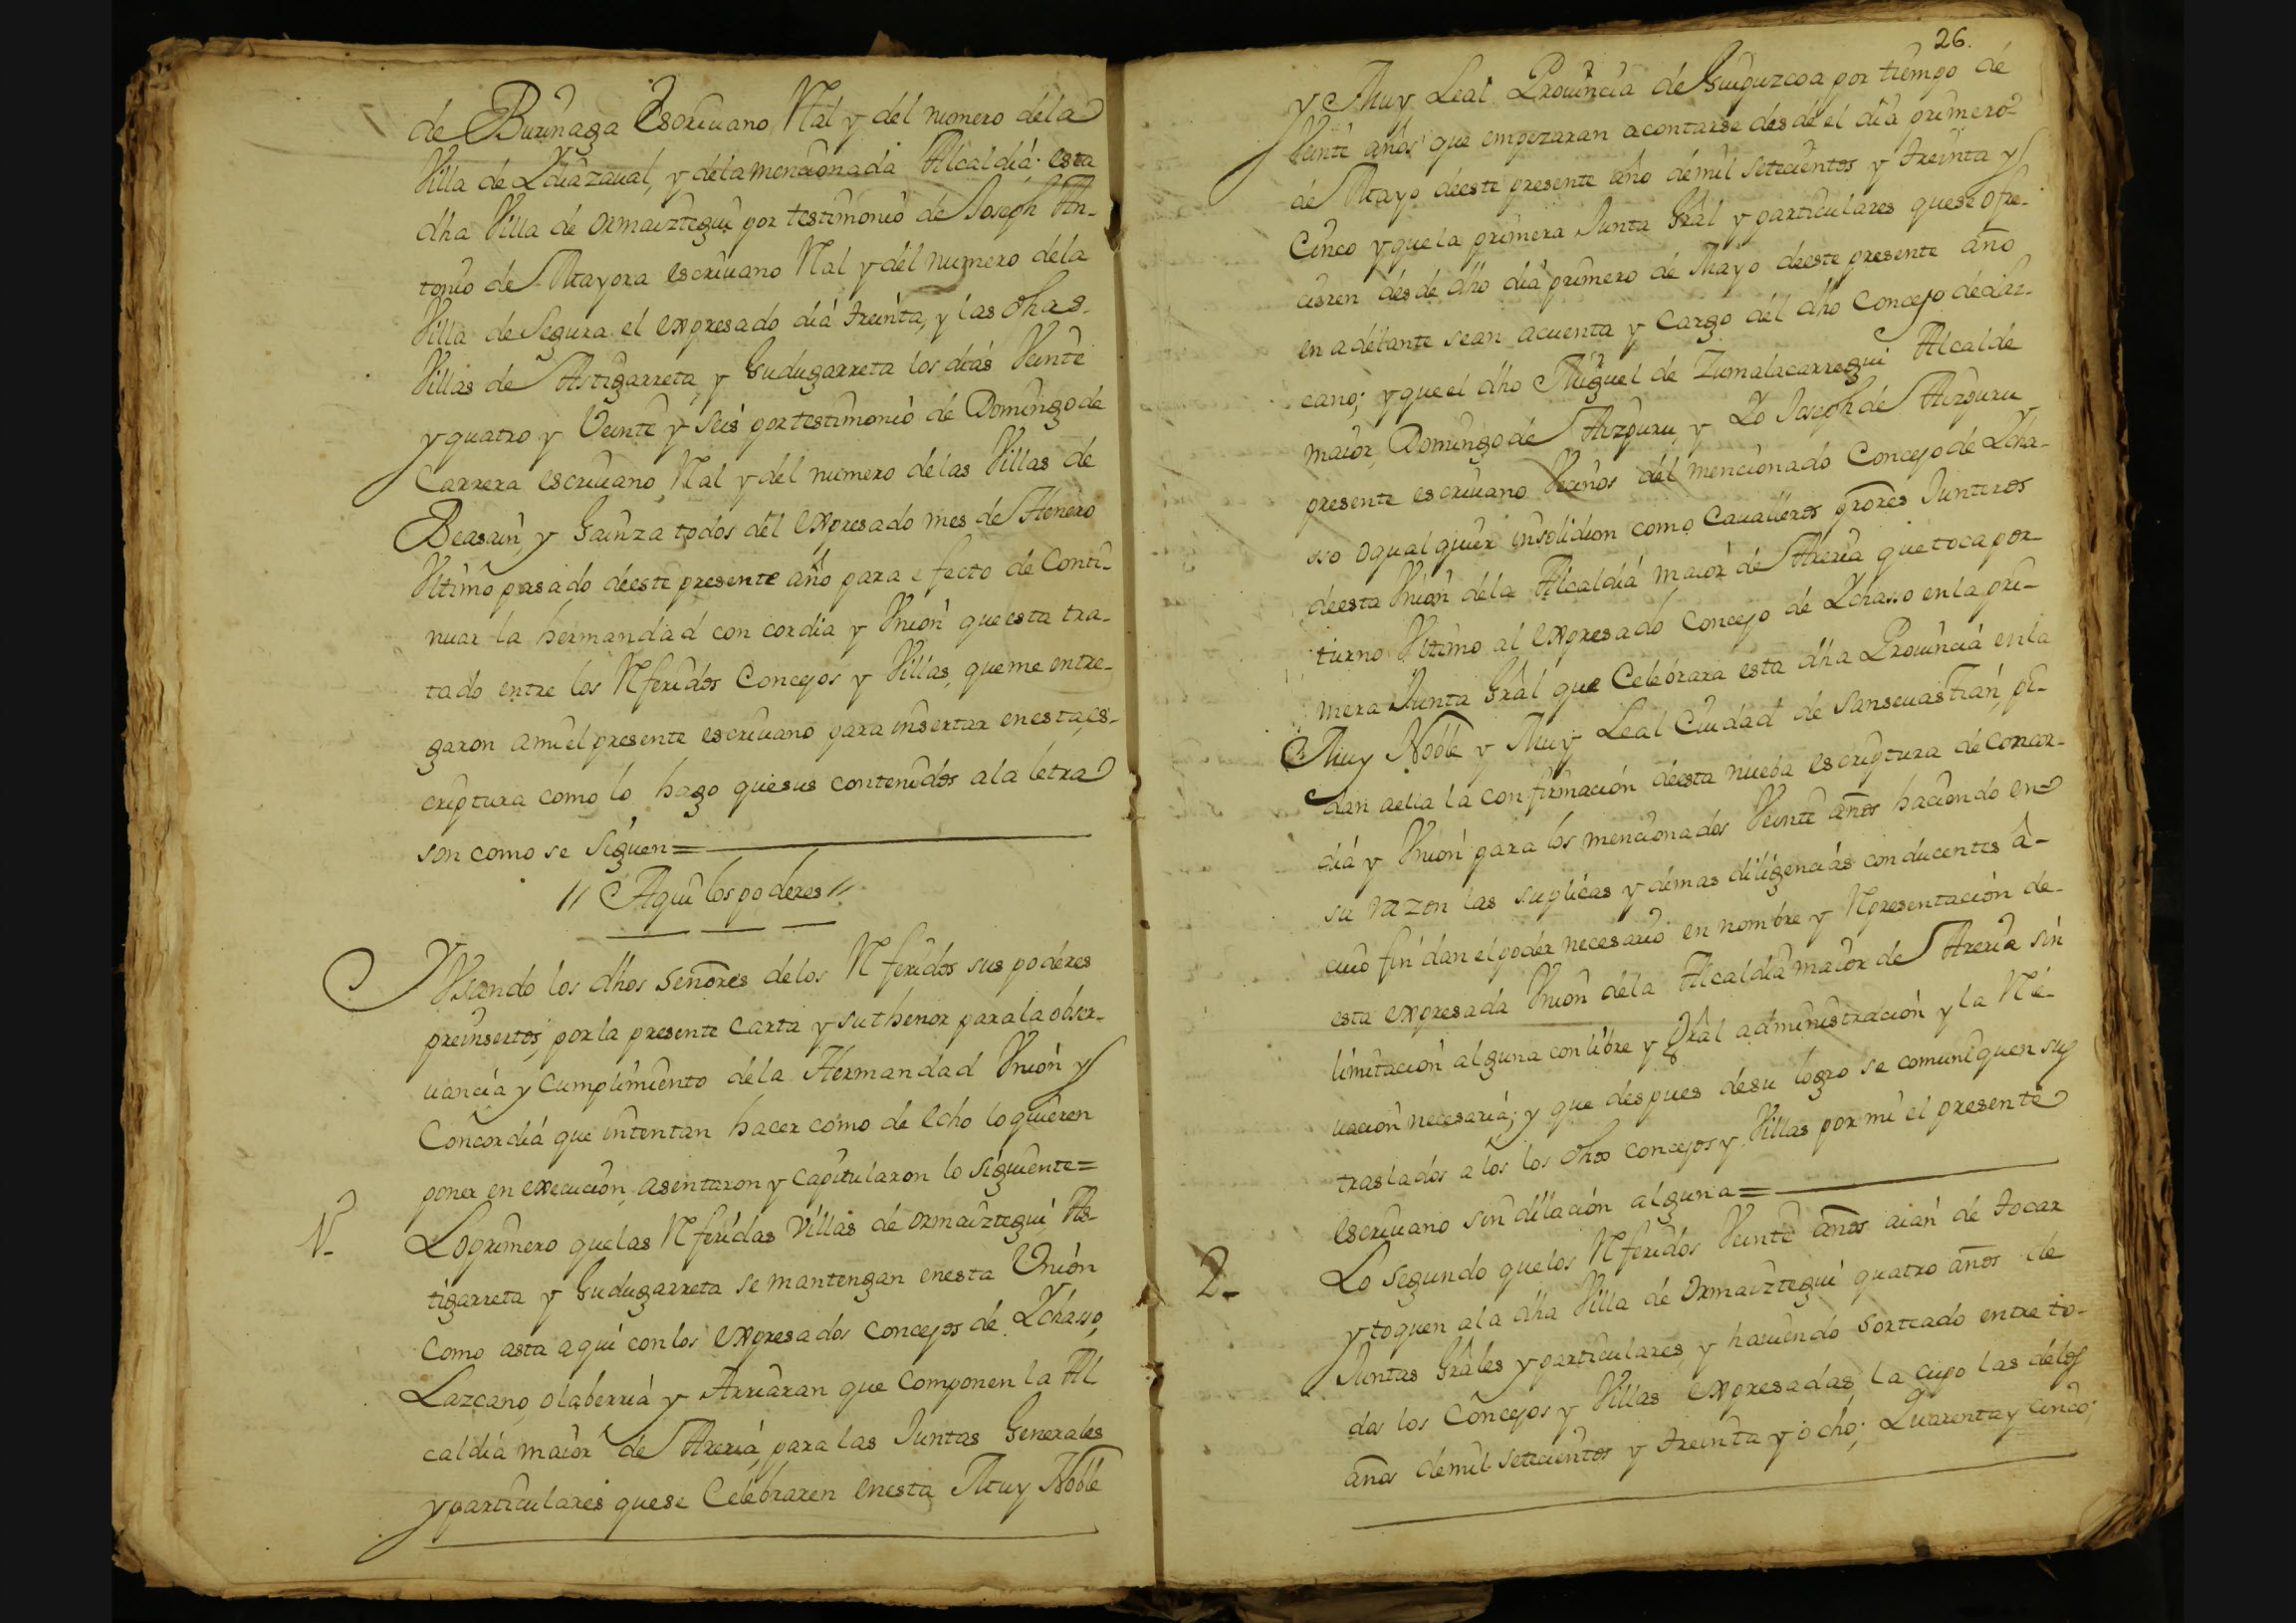 de Burinaga Escriuano Rāl y del numero dela
Villa de Ydiazaual, y dela mencionada Alcaldia; esta
dha Villa de ormaiztegui por testimonio de Joseph An-
tonio de Mayora escriuano Rāl y del numero dela
Villa de Segura el expresado dia treinta, y las dhas
Villas de Astigarreta, y Gudugarreta los dias Veinte
y quatro y Veinte y seis por testimonio de Domingo de
Carrera escriuano Rāl y del numero de las Villas de
Beasain, y Gainza todos del expresado mes de Henero
Vltimo pasado deeste presente año para efecto de Conti-
nuar la hermandad concordia y Vnion que esta tra-
tado entre los Referidos Concejos y Villas, que me entre-
garon ami el presente escriuano para insertar enesta es-
criptura como lo hago que sus contenidos ala letra
son como se siguen=
// Aqui los poderes //
Vsando los dhos señores delos Referidos sus poderes
preinsertos, por la presente carta y su thenor para la obser-
uancia y Cumplimiento dela Hermandad Vnion y
Concordia que intentan hacer como de echo lo quieren
poner en execucion, asentaron y capitularon lo siguiente=
1.- Lo primero que las Referidas Villas de ormaiztegui As-
tigarreta y Gudugarreta se mantengan enesta Vnion
Como asta aqui con los expresados concejos de Ychasso,
Lazcano, olaberria y Arriaran que componen la Al
caldia maior de Areria, para las Juntas Generales
y particulares que se Celebraren enesta Muy Noble
26.
y Muy Leal Prouincia de Guipuzcoa por tiempo de
Veinte años que empezaran acontarse desde el dia primero
de Mayo deeste presente año de mil setecientos y treinta y
Cinco y que la primera Junta Grāl y particulares que se ofre-
cieren desde dho dia primero de Mayo deeste presente año
en adelante sean acuenta y cargo del dho Concejo de
cano; y que el dho Miguel de Zumalacarregui Alcalde
maior, Domingo de Aizpuru, y Yo Joseph de Aizpuru
presente escriuano Vecinos del mencionado Concejo de Ycha-
sso o qualquier insolidum como Caualleros prōres Junteros
deesta Vnion dela Alcaldia maior de Areria que toca por
turno Vltimo al expresado Concejo de Ychasso en la pri-
mera Junta Grāl que Celebrara esta dha Prouincia en la
Muy Noble y Muy Leal Ciudad de Sanseuastian, pi-
dan aella la confirmacion deesta nueba escriptura de concor-
dia y Vnion para los mencionados Veinte años haciendo en
su razon las suplicas y demas diligencias conducentes a-
cuio fin dan el poder necesario en nombre y Representacion de
esta expresada Vnion dela Alcaldia maior de Areria sin
limitacion alguna con libre y Grāl administracion y la Rele-
uacion necesaria; y que despues de su logro se comuniquen sus
traslados a los los dhos concejos y Villas por mi el presente
escriuano sin dilacion alguna=
2.- Lo segundo que los Referidos Veinte años aian de tocar
y toquen ala dha Villa de ormaiztegui quatro años de
Juntas Grāles y particulares, y hauiendo sorteado entre to-
dos los Concejos y Villas expresadas, la cupo las delos
años de mil setecientos y treinta y ocho; Quarenta y cinco;